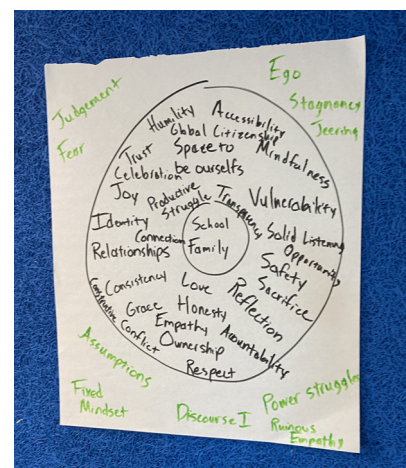 Judgement
Ego
Stagnancy
Jeering
Fear
Humility
Accessibility
Global Citizenship
Trust
Space to
be ourselves
Mindfulness
Celebration
Joy
Productive
Struggle
Transparency
Vulnerability
Identity
Connection
School
Family
Solid Listening
Opportunity
Relationships
Safety
Consistency
Love
Reflection
Sacrifice
Grace
Honesty
Constructive
Conflict
Empathy
Accountability
Ownership
Respect
Assumptions
Fixed
Mindset
Discourse I
Power struggles
Ruinous
Empathy